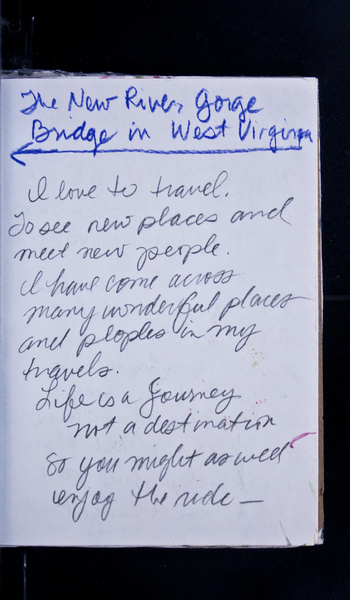 The New River Gorge
Bridge in West Virginia
I love to travel.
To see new places and
meet new people.
I have come across
many wonderful places
and ploples in my
travels.
Life is a Journey
not a destination
So you might as well
enjoy the ride —